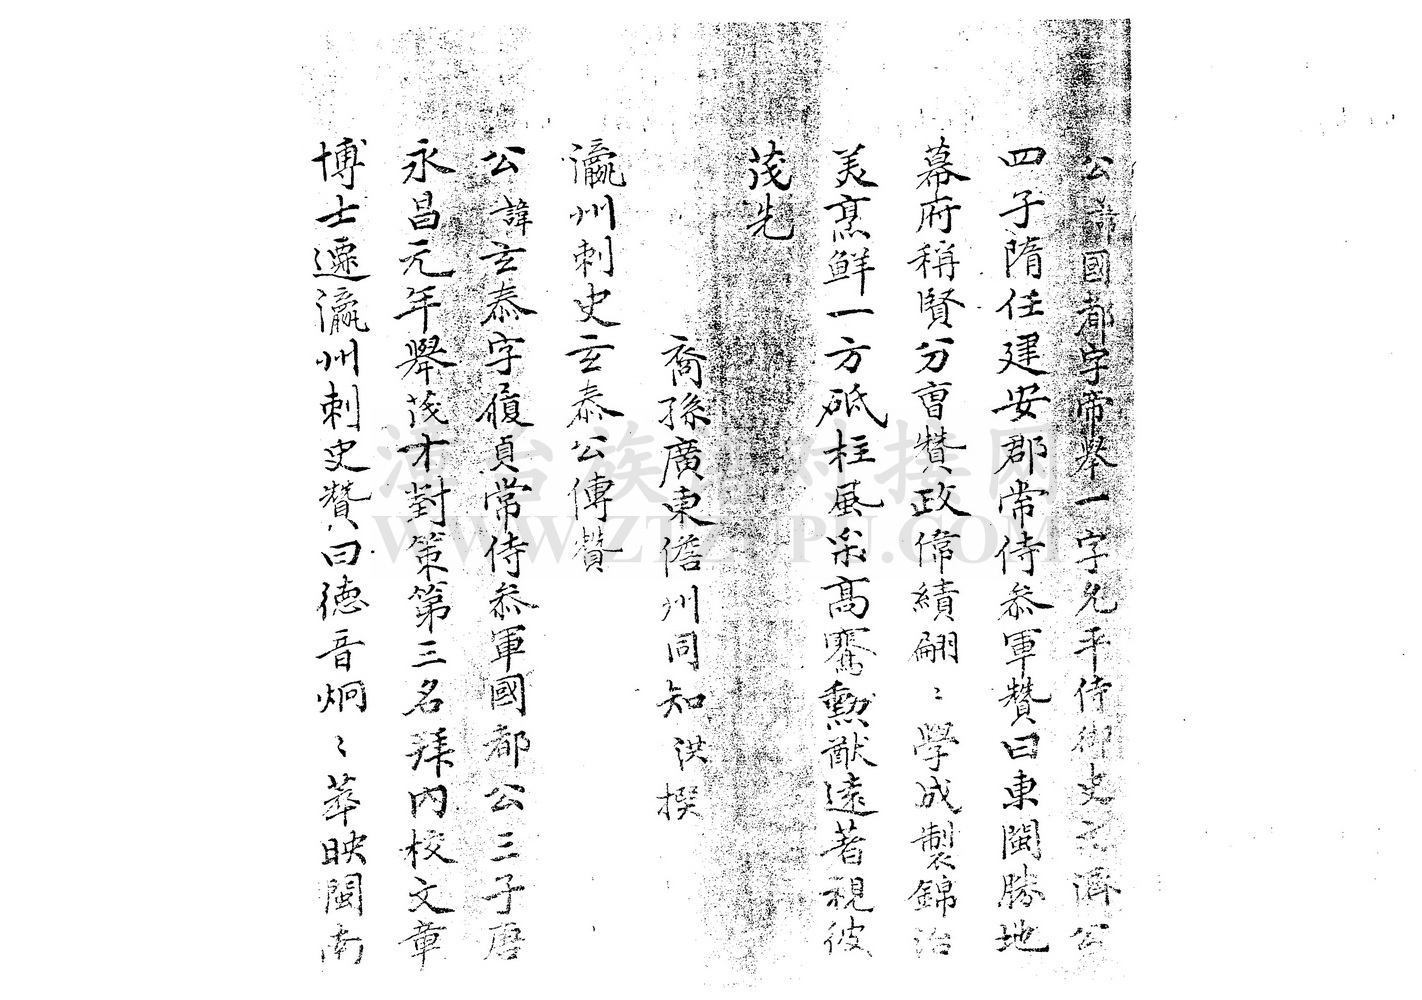 公諱國都字帝舉一字允平侍御史元濟公
四子隋任建安郡常侍叅軍贊曰東閩勝地
幕府稱賢分曹贊政偉績翩〻學成製錦治
美烹鮮一方砥柱風采高騫勲猷遠著視彼
茂先
裔孫廣東儋州同知洪撰
瀛州刺史玄泰公傳贊
公諱玄泰字履貞常侍叅軍國都公三子唐
永昌元年舉茂才對策第三名拜內校文章
博士遷瀛州刺史贊曰德音炯〻萃映閩南
漳台族譜对接网
WWW.ZTZUPU.COM